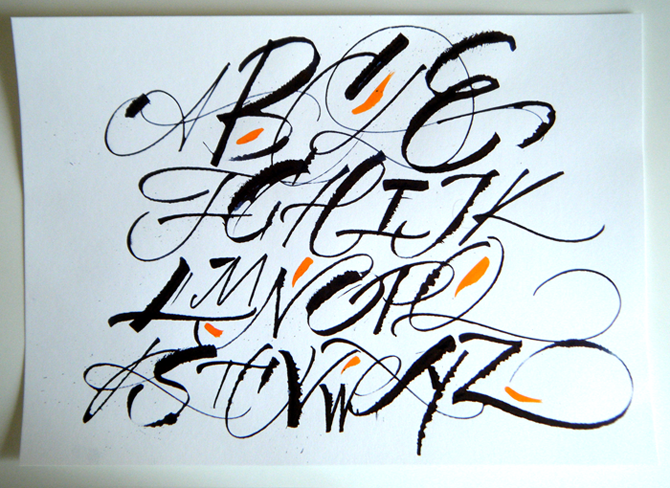 ABCDE
FGHIJK
LMNOPQ
RSTUVWXYZ